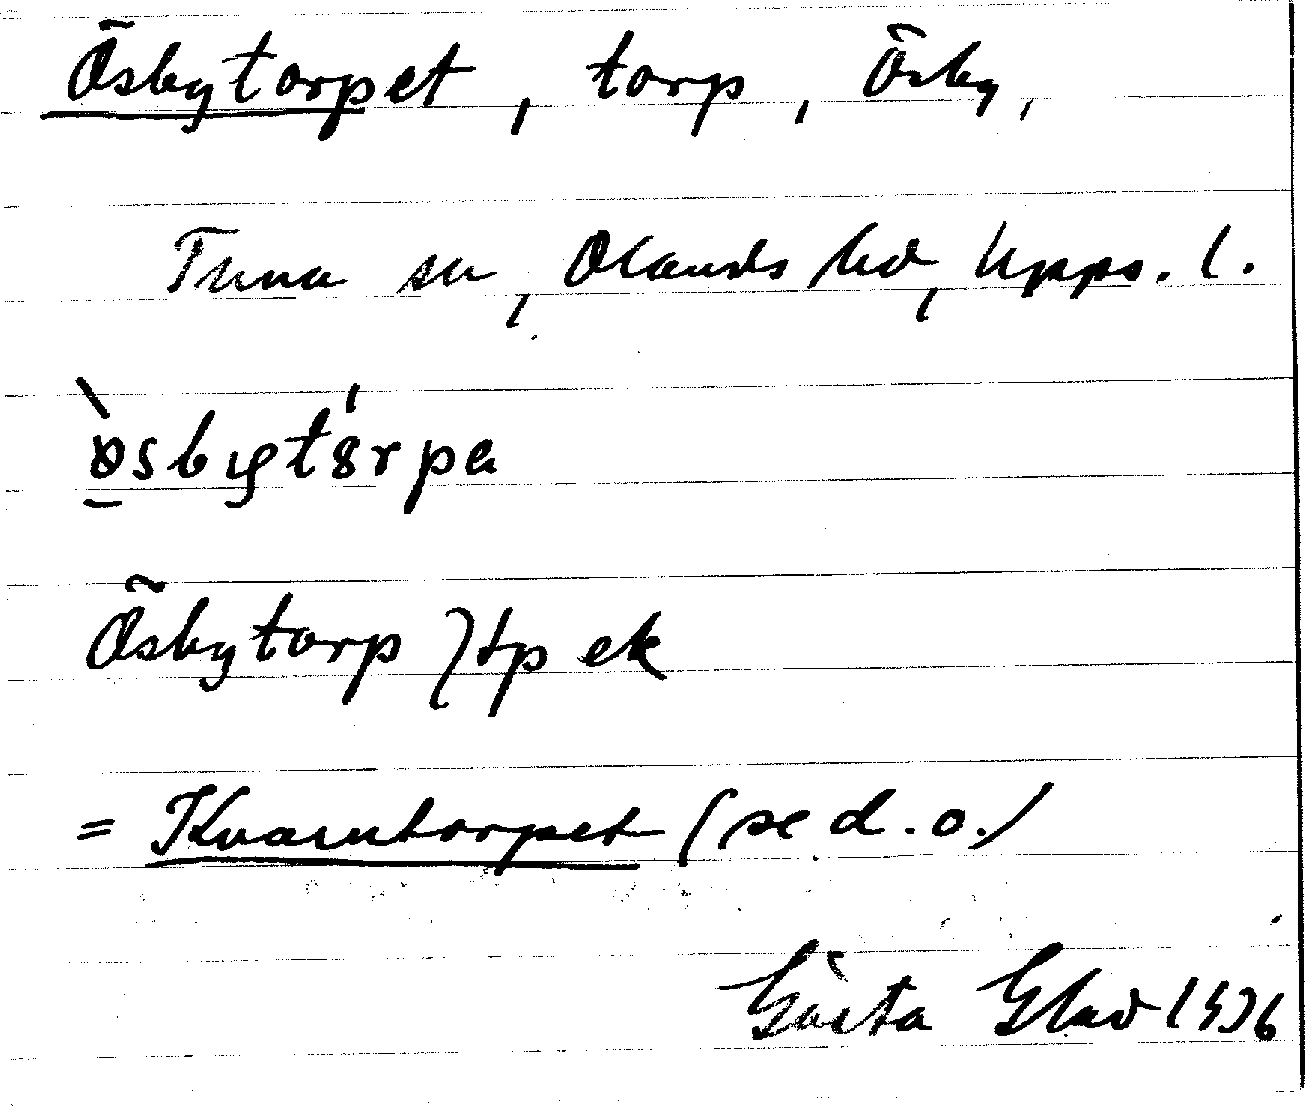 Ösbytorpet, torp, Ösby,
Tuna sn, Olands hd, Upps. l.
Ösbytorp } tp ek
= Kvarntorpet (se d.o.)
Gösta Glad 1936